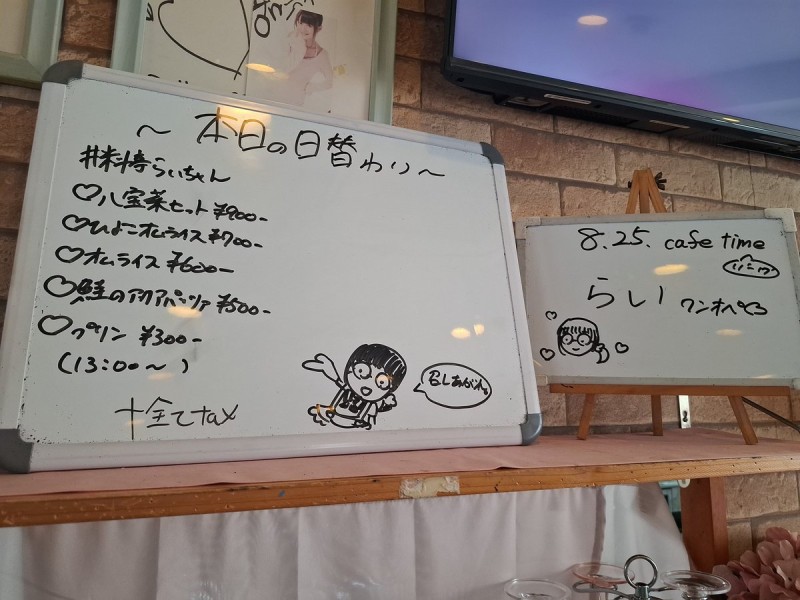 ～本日の日替わり～
♡八宝菜セット ¥900-
♡ひよこオムライス ¥700-
♡オムライス ¥600-
♡鮭のアクアパッツァ ¥500-
♡プリン ¥300-
(13:00～)
+全てtax
召しあがれ。
8.25. cafe time
らい ワンオペ